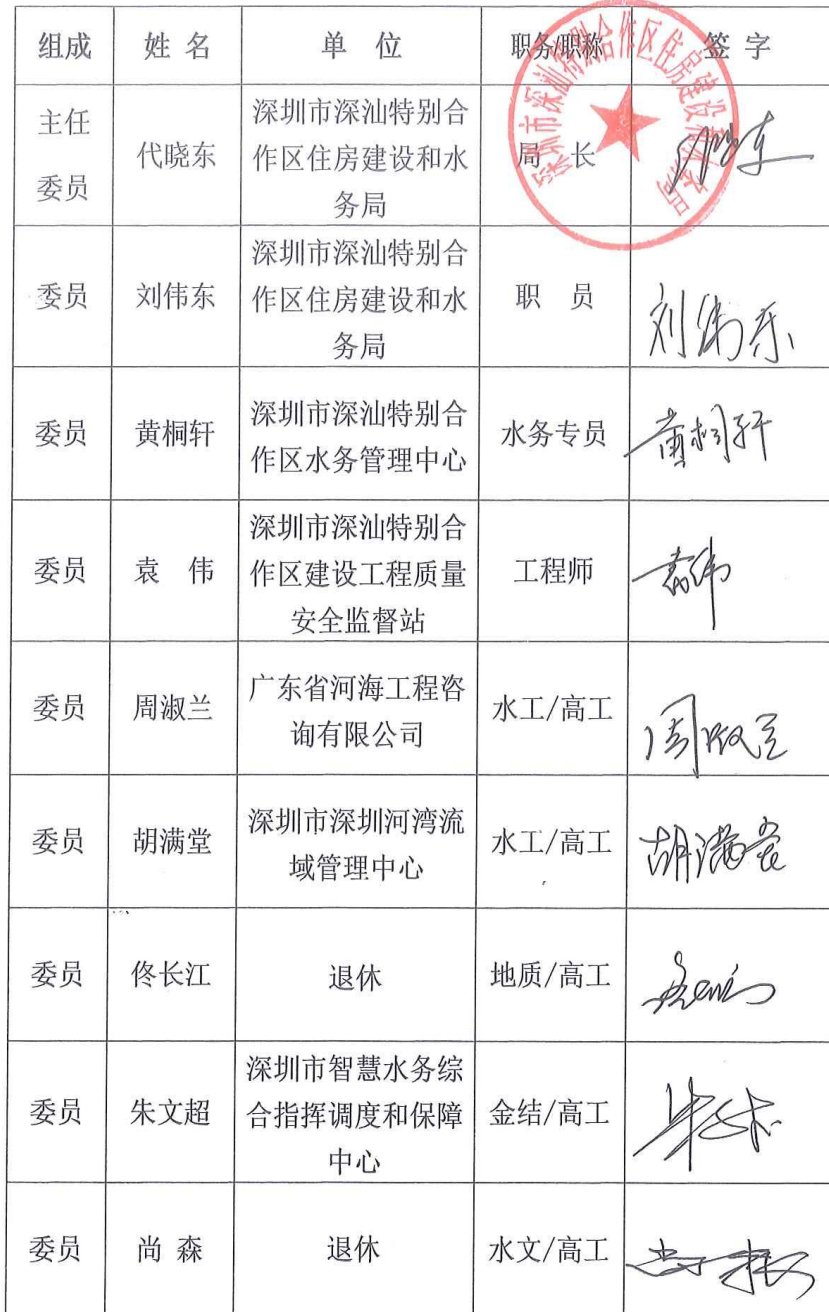 组成 姓 名 单 位 职务/职称 签 字
主任
委员
代晓东
深圳市深汕特别合
作区住房建设和水
务局
局 长
深圳市深汕特别合作区住房建设和水务局
委员 刘伟东
深圳市深汕特别合
作区住房建设和水
务局
职 员
刘伟东
委员 黄桐轩
深圳市深汕特别合
作区水务管理中心
水务专员
黄桐轩
委员 袁 伟
深圳市深汕特别合
作区建设工程质量
安全监督站
工程师
袁伟
委员 周淑兰
广东省河海工程咨
询有限公司
水工/高工
周淑兰
委员 胡满堂
深圳市深圳河湾流
域管理中心
水工/高工
胡满堂
委员 佟长江 退休 地质/高工
委员 朱文超
深圳市智慧水务综
合指挥调度和保障
中心
金结/高工
委员 尚 森 退休 水文/高工